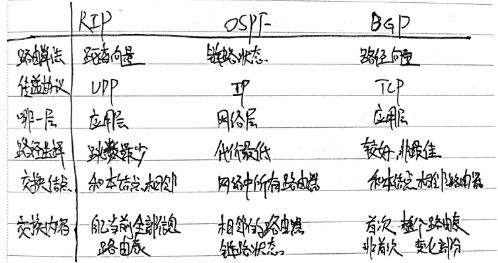 RIP OSPF BGP
路由算法 距离向量 链路状态 路径向量
传递协议 UDP IP TCP
哪一层 应用层 网络层 应用层
路径选择 跳数最少 代价最低 较好,非最佳
交换结点 和本结点相邻 网络中所有路由器 和本结点相邻路由器
交换内容 自己当前全部信息 相邻的路由器 首次 整个路由表
路由表 链路状态。 非首次 变化部分